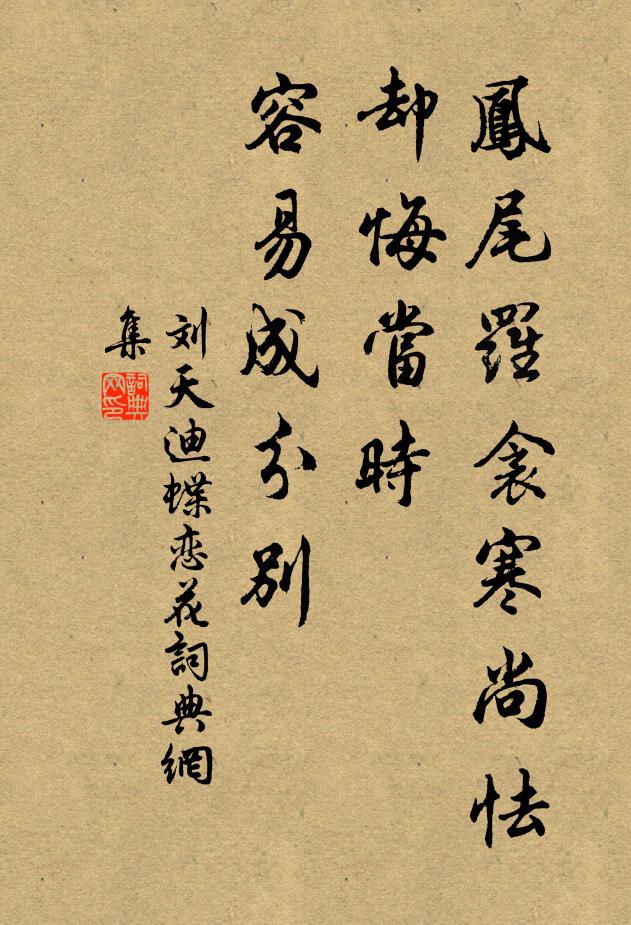 鳳尾羅衾寒尚怯
却悔當時
容易成分別
刘天迪蝶恋花詞典網
集
詞典网印